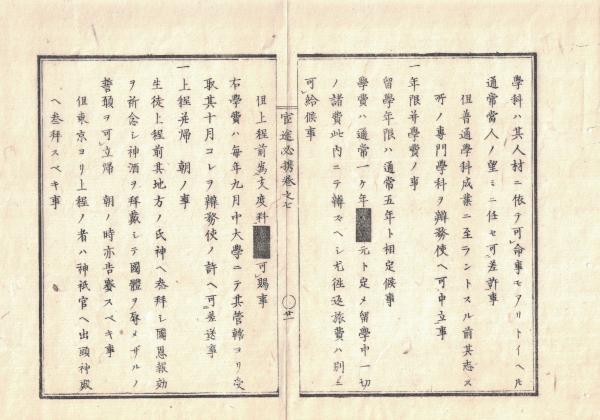 学科ハ其人材ニ依テ可命事モアリトイヘ𪜈
通常當人ノ望ミニ任セ可差許事
但普通學科成業ニ至ラントスル前其志ス
所ノ専門學科ヲ辨務使ヘ可申立事
一年限并學費ノ事
留學年限ハ通常五年ト相定候事
學費ハ通常一ケ年
元ト定メ留學中一切
ノ諸費此内ニテ辨スヘシ尤徃返旅費ハ別ニ
可給候事
官途必携巻之七
廿一
但上程前爲支度料
可賜事
右學費ハ毎年九月中大學ニテ其管轄ヨリ受
取其十月コレヲ辨務使ノ許ヘ可差送事
一上程并歸 朝ノ事
生徒上程前其地方ノ氏神ヘ参拜シ國恩報効
ヲ祈念シ神酒ヲ拜戴シテ國體ヲ辱メザルノ
誓願ヲ可立歸 朝ノ時亦告賽スベキ事
但東京ヨリ上程ノ者ハ神祇官ヘ出頭神殿
ヘ参拜スベキ事